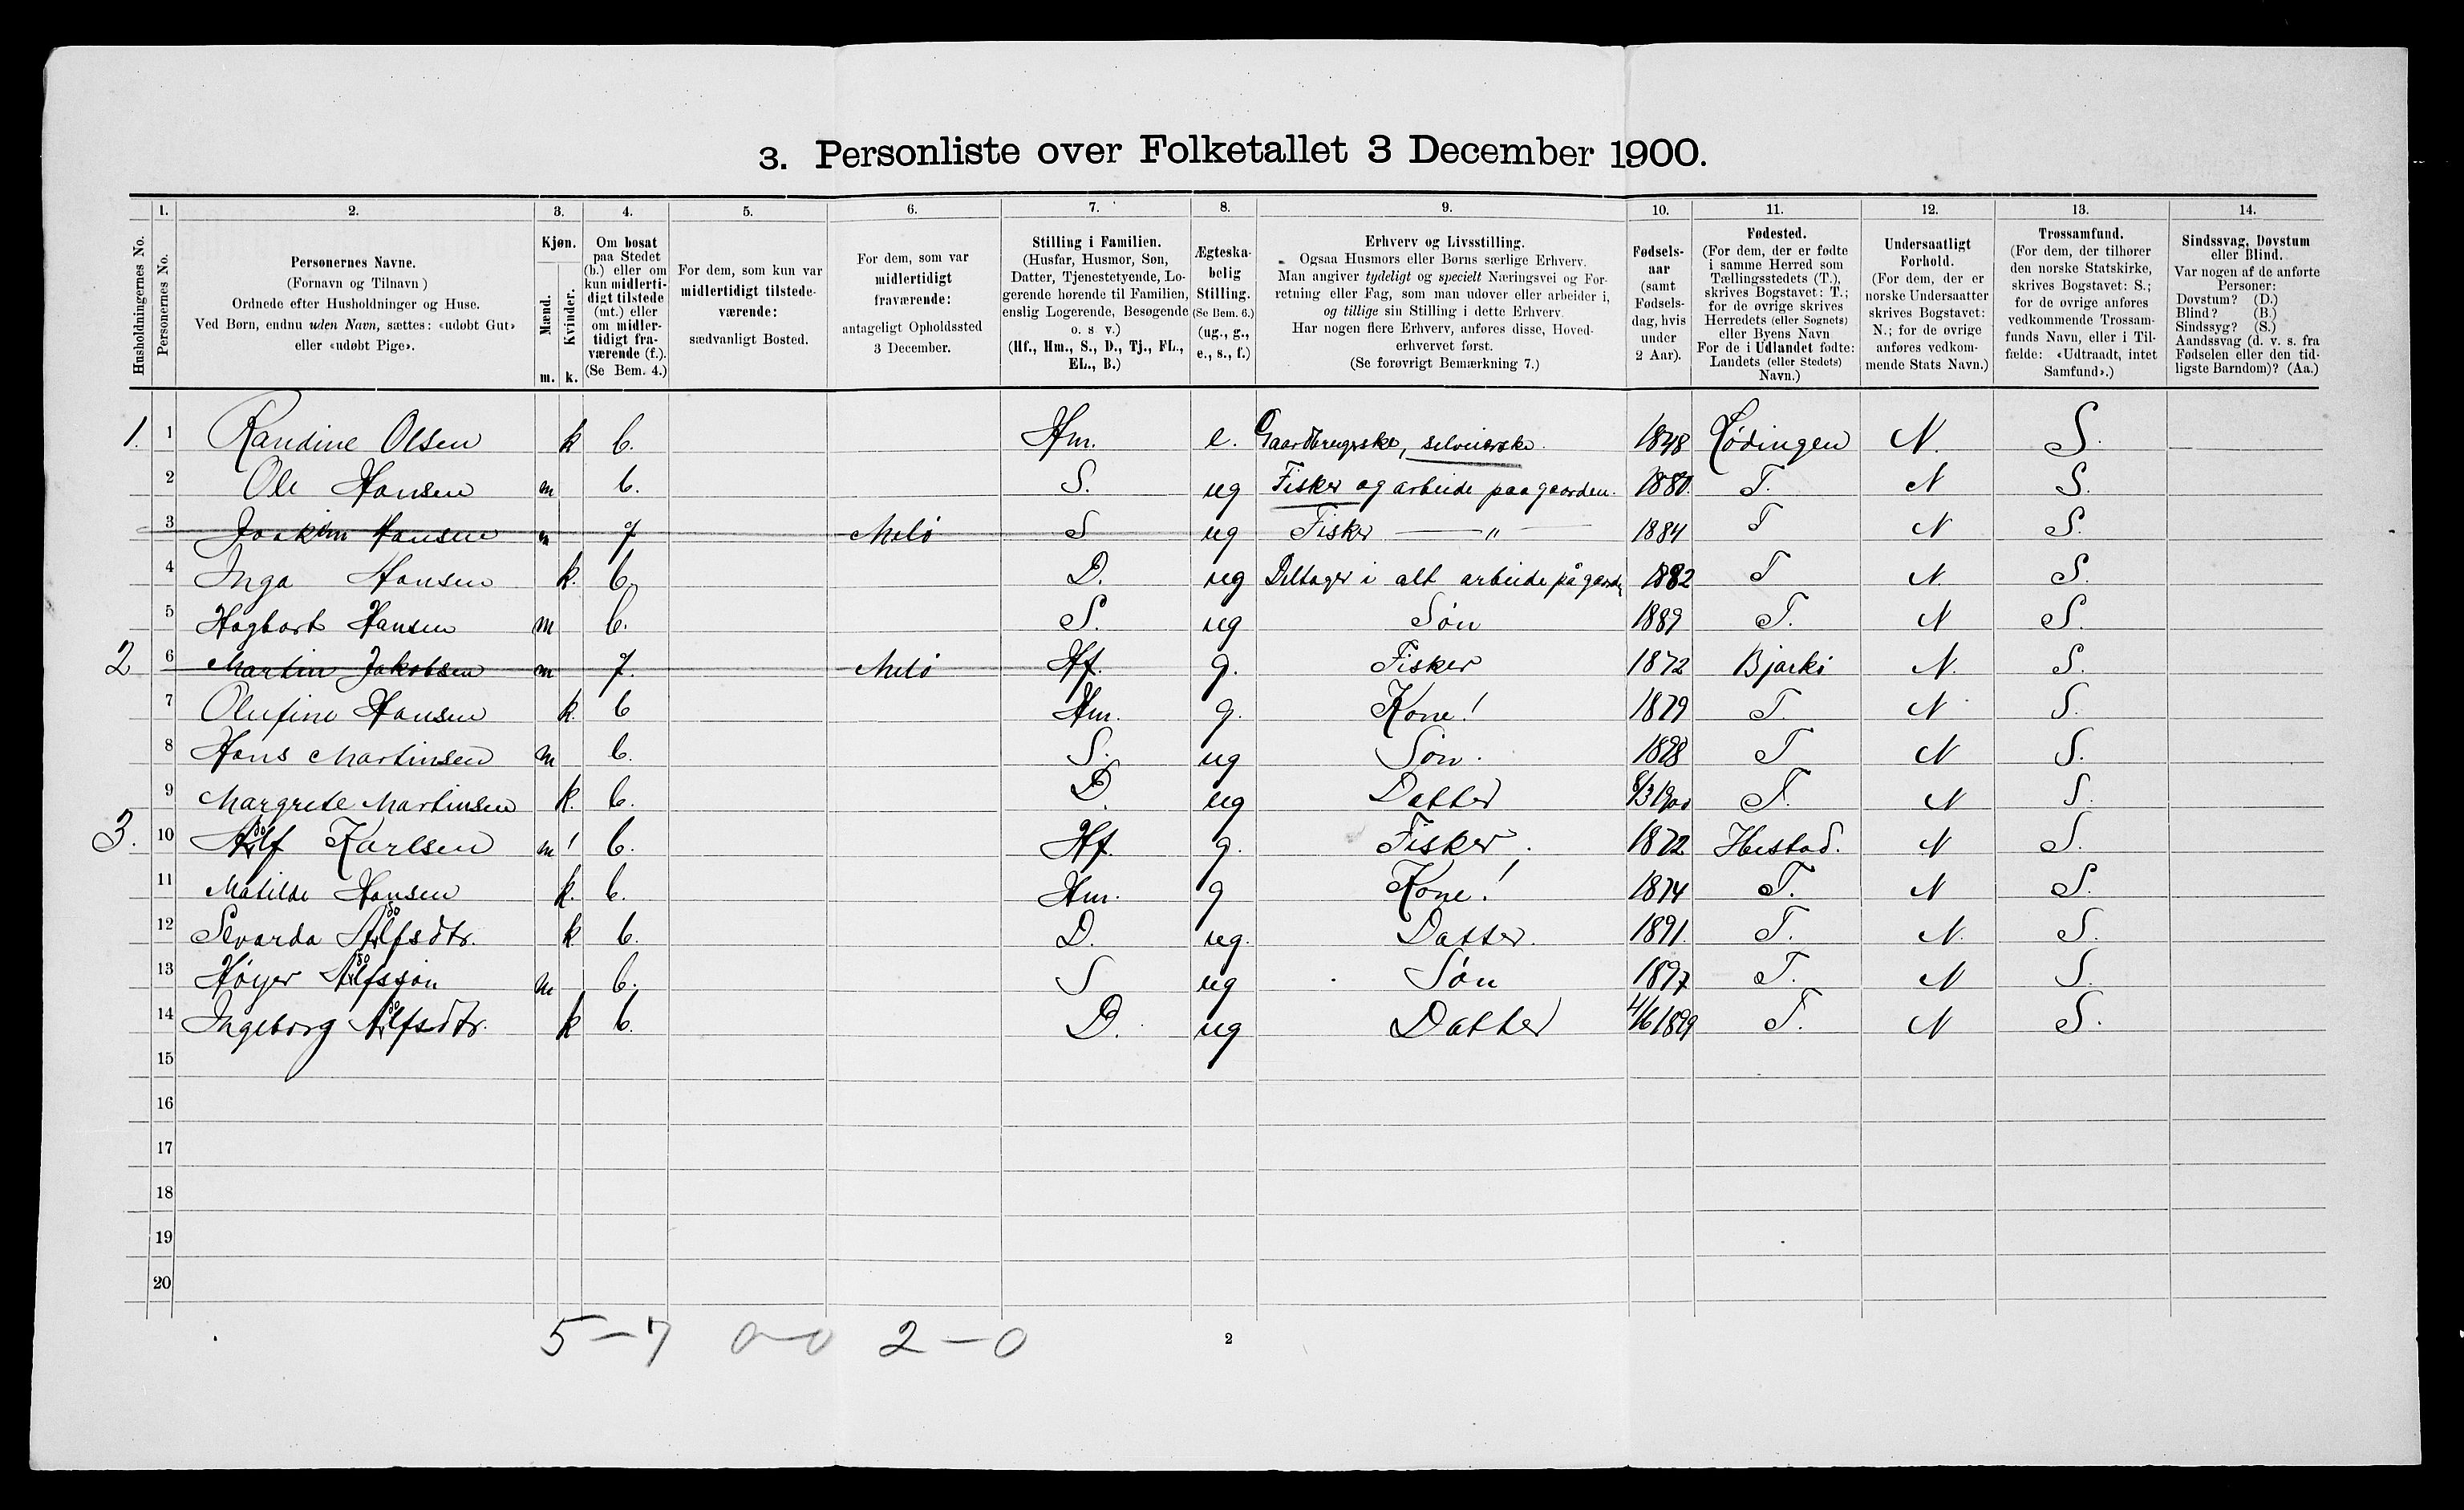 3. Personliste over Folketallet 3 December 1900.
1. 2. 3. 4. 5. 6. 7. 8. 9. 10. 11. 12. 13. 14.
Husholdningernes No.
Personernes No.
Personernes Navne.
(Fornavn og Tilnavn)
Ordnede efter Husholdninger og Huse.
Ved Børn, endnu uden Navn, sættes: «udøbt Gut»
eller «udøbt Pige».
Kjøn.
Mænd.
Kvinder.
m. k.
Om bosat
paa Stedet
(b.) eller om
kun midlerti-
digt tilstede
(mt.) eller
om midler-
tidigt fra-
værende (f.).
(Se Bem. 4.)
For dem, som kun var
midlertidigt tilstede-
værende:
sædvanligt Bosted.
For dem, som var
midlertidigt
fraværende:
antageligt Opholdssted
3 December.
Stilling i Familien.
(Husfar, Husmor, Søn,
Datter, Tjenestetyende, Lo-
gerende hørende til Familien,
enslig Logerende, Besøgende
o. s v.)
(Hf., Hm., S., D., Tj., FL.,
EL., B.)
Ægteska-
belig
Stilling.
(Se Bem. 6.)
(ug., g.,
e., s., f.)
Erhverv og Livsstilling.
Ogsaa Husmors eller Børns særlige Erhverv.
Man angiver tydeligt og specielt Næringsvei og For-
retning eller Fag, som man udøver eller arbeider i,
og tillige sin Stilling i dette Erhverv.
Har nogen flere Erhverv, anføres disse, Hoved-
erhvervet først.
(Se forøvrigt Bemærkning 7.)
Fødsels-
aar
(samt
Fødsels-
dag, hvis
under
2 Aar).
Fødested.
(For dem, der er fødte
i samme Herred som
Tællingsstedets (T.),
skrives Bogstavet: T.;
for de øvrige skrives
Herredets (eller Sognets)
eller Byens Navn
For de i Udlandet fødte:
Landets (eller Stedets)
Navn.)
Undersaatligt
Forhold.
(For dem, der er
norske Undersaatter
skrives Bogstavet:
N.; for de øvrige
anføres vedkom-
mende Stats Navn.)
Trossamfund.
(For dem, der tilhører
den norske Statskirke,
skrives Bogstavet: S.;
for de øvrige anføres
vedkommende Trossam-
funds Navn, eller i Til-
fælde: «Udtraadt, intet
Samfund».)
Sindssvag, Døvstum
eller Blind.
Var nogen af de anførte
Personer:
Døvstum? (D.)
Blind? (B.)
Sindssyg? (S.)
Aandssvag (d. v. s. fra
Fødselen eller den tid-
ligste Barndom)? (Aa.)
1. 1 Randine Olsen k b. Hm. e. Gaardbrugerske, selveierske. 1848 Lødingen N. S.
2 Ole Hansen m b. S. ug Fisker og arbeide paa gaarden. 1880. T. N S.
3 Joakim Hansen m f Melö S ug Fisker — " — 1884 T N S.
4 Inga Hansen k. b. D. ug Deltager i alt arbeide på gaarden 1882 T N S.
5 Hagbart Hansen m b. S. ug Søn 1889 T. N S.
2 6 Martin Jakobsen m f. Melö Hf. g. Fisker 1872 Bjarkö N. S.
7 Olufine Hansen k. b Hm. g. Kone! 1879 T. N S.
8 Hans Martinsen m b. S. ug Søn. 1898 T N S.
9 Margrete Martinsen k. b. D. ug Datter 8/3 1900 T. N S.
3. 10 Karlsen m! b. Hf. g. Fisker. 1872 N S.
11 Matilde Hansen k. b. Hm. g Kone! 1874 T. N S.
12 Sevarda k b. D. ug. Datter. 1891. T. N. S.
13 Høyer m b. S ug Søn 1897 T. N S.
14 Ingeborg k b. D. ug Datter 4/6 1899 T. N S.
15
16
17
18
19
20
5–7 0–0 2–0
2